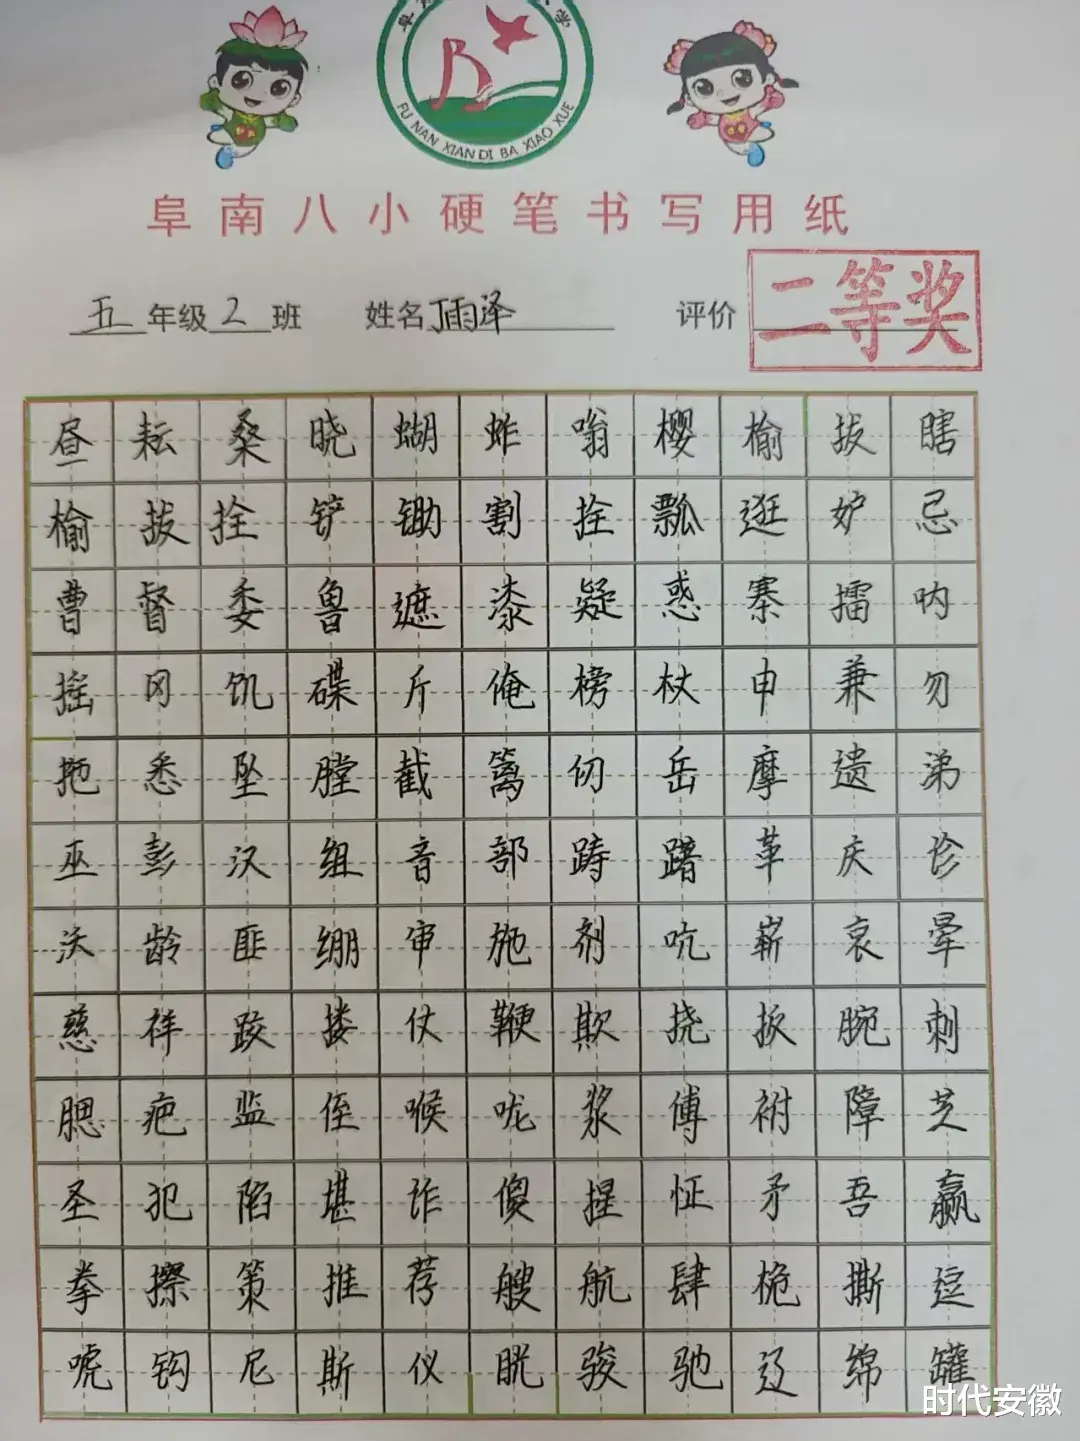 FU NAN XIAN DI BA XIAO XUE
阜南八小硬笔书写用纸
五年级2班 姓名丁雨泽 评价 二等奖
昼耘桑晓蝴蚱嗡樱榆拔瞎
榆拔拴铲锄割拴瓢逛妒忌
曹督委鲁遮漆疑惑寨擂呐
摇冈饥碟斤俺榜杖申兼勿
拖悉坠膛截篱仞岳摩遗涕
巫彭汉组音部踌躇革庆诊
沃龄匪绷审施剂吭崭哀晕
慈祥跤搂仗鞭欺挠扳腕刺
腮疤监侄喉咙浆傅袝障芝
圣犯陷堪诈傻捏怔矛吾赢
拳擦策推荐艘航肆桅撕逗
唬钩尼斯仪咣骏驰辽绵罐
时代安徽